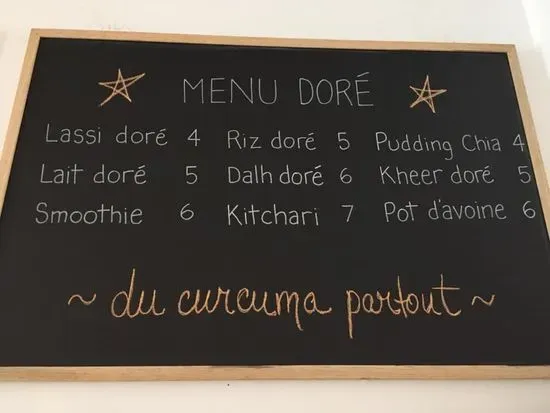 MENU DORÉ
Lassi doré 4 Riz doré 5 Pudding Chia 4
Lait doré 5 Dalh doré 6 Kheer doré 5
Smoothie 6 Kitchari 7 Pot d'avoine 6
~ du curcuma partout ~